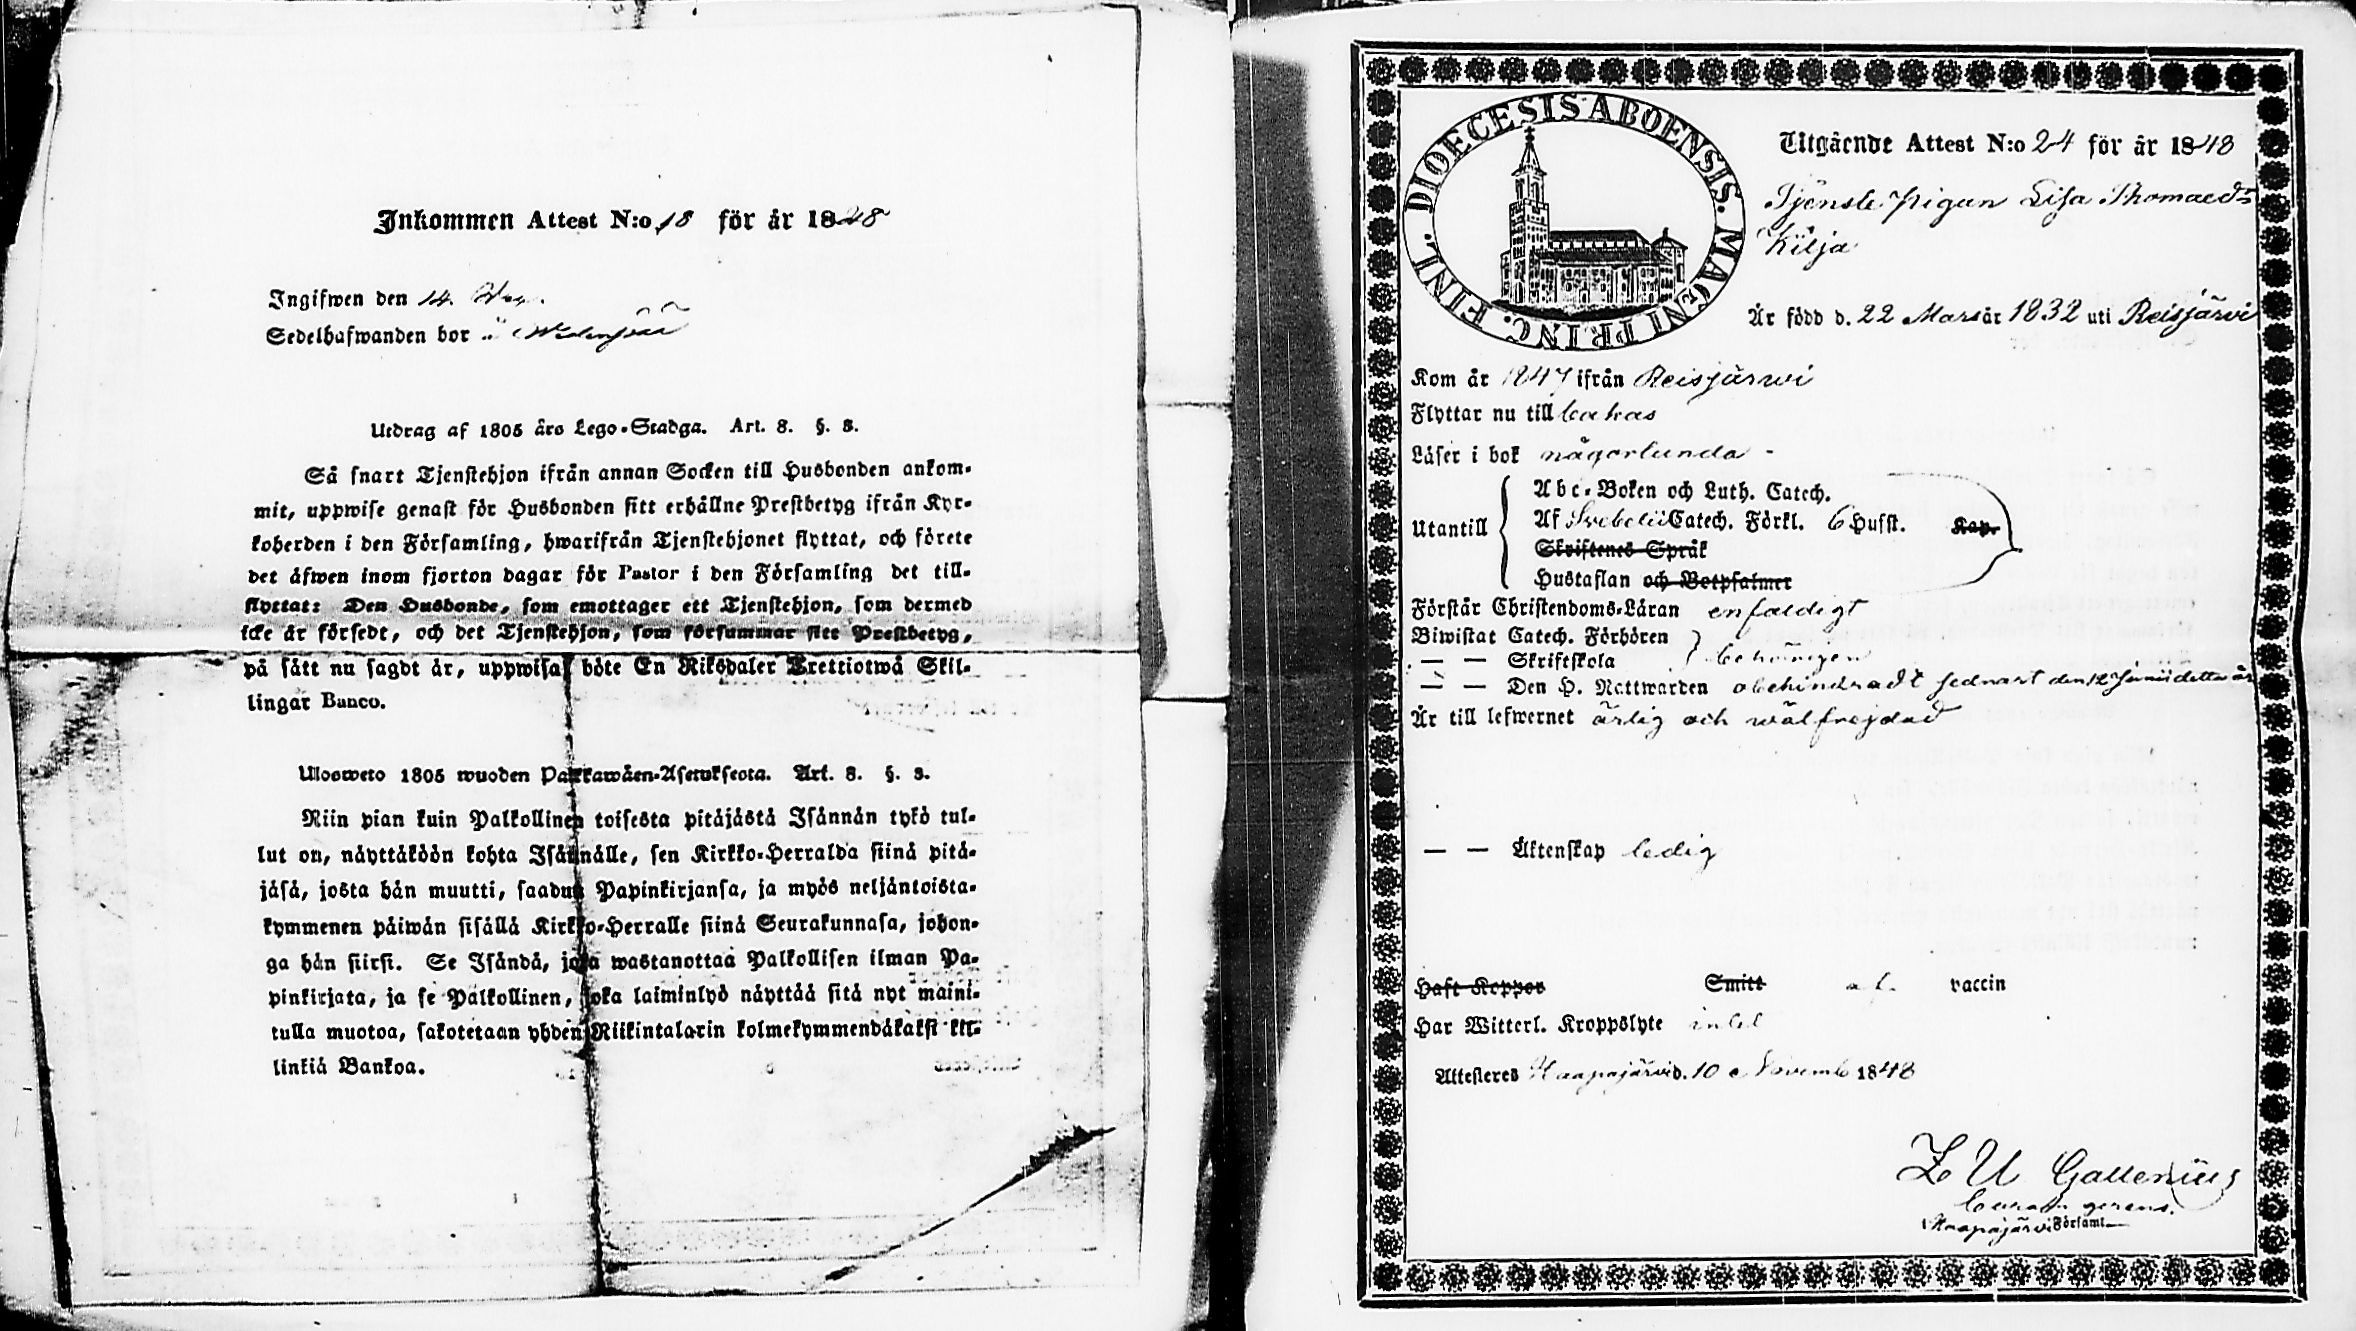 Inkommen Attest N:o 18 för år 1848
Ingifwen den 14.
Sedelhafwanden bor
Utdrag af 1805 års Lego-Stadga. Art. 8. §. 3.
Så snart Tjenstehjon ifrån annan Socken till Husbonden ankom-
mit, uppwise genast för Husbonden sitt erhållne Prestbetyg ifrån Kyr-
koherden i den Församling, hwarifrån Tjenstehjonet flyttat, och förete
det äfwen inom fjorton dagar för Pastor i den Församling det till-
flyttat: Den Husbonde, som emottager ett Tjenstehjon, som dermed
icke är försedt, och det Tjenstehjon, som försummar sitt Prestbetyg,
på sätt nu sagdt är, uppwisa, böte En Riksdaler Trettiotwå Skil-
lingar Banco.
Ulosweto 1805 wuoden Palkkawäen-Asetuksesta. Art. 8. §. 3.
Niin pian kuin Palkollinen toisesta pitäjästä Isännän tykö tul-
lut on, näyttäköön kohta Isännälle, sen Kirkko-Herralda siinä pitä-
jäsä, josta hän muutti, saadun Papinkirjansa, ja myös neljäntoista-
kymmenen päiwän sisällä Kirkko-Herralle siinä Seurakunnasa, johon-
ga hän siirsi. Se Isändä, joka wastanottaa Palkollisen ilman Pa-
pinkirjata, ja se Palkollinen, joka laiminlyö näyttää sitä nyt maini-
tulla muotoa, sakotetaan yhden Riikintalarin kolmekymmendäkaksi kil-
linkiä Bankoa.
DIOECESIS ABOENSIS. MAGNI PRINC. FINL.
Utgående Attest N:o 24 för år 1848
Tjenste pigan Lisa Thomaedr
Kilja
Är född d. 22 Mars år 1832 uti Reisjärvi
Kom år 1847 ifrån Reisjärwi
Flyttar nu till
Läser i bok någorlunda -
Utantill
Abc-Boken och Luth. Catech.
Af Svebelii Catech. Förkl. 6 Hufst. Kap.
Skriftenes Språk
Hustaflan och Botpsalmer
Förstår Christendoms-Läran enfaldigt
Biwistat Catech. Förhören
— — Skriftskola behörigen
— — Den H. Nattwarden obehindradt sednast den 12 Junii detta år
Är till lefwernet ärlig och wälfrejdad
— — Äktenskap ledig
Haft Koppor Smitt af vaccin
Har Witterl. Kroppslyte intet
Attesteres Haapajärvi d. 10 Novemb 1848
Z U Gallenius
gerens.
i Haapajärvi Församl.